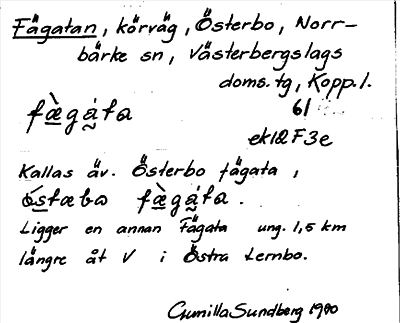 Fägatan, körväg, Österbo, Norr-
bärke sn, Västerbergslags
doms. tg, Kopp. l.
fæ̀gáta 61
ek 12 F 3e
Kallas äv. Österbo fägata,
óstæbo fæ̀gáta.
Ligger en annan Fägata ung. 1,5 km
längre åt V i Östra Lernbo.
Gunilla Sundberg 1980